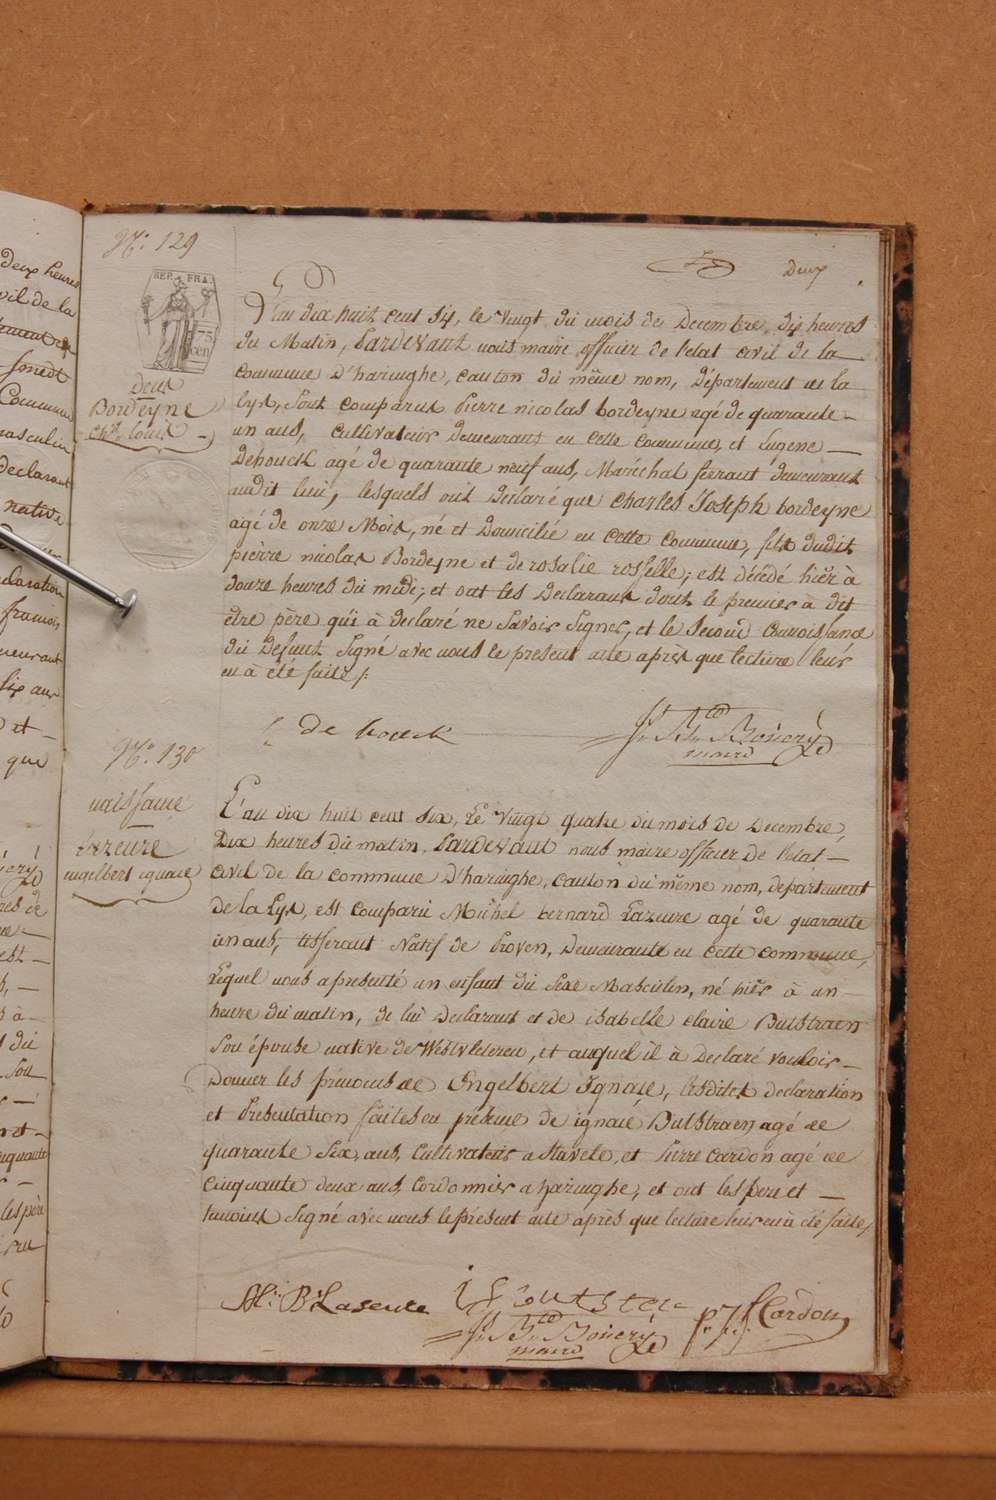 N.º 129
Deux
REP. FRA.
75
cen
deux
Bordeyne
ch.les louis
L'an dix huit cent six, le vingt du mois de Decembre, dix heures
du Matin, Pardevant nous maire officier de l'etat civil de la
commune d'haringhe, canton du même nom, Département de la
lys, sont comparus Pierre nicolas bordeyne agé de quarante
un ans, cultivateur demeurant en cette commune, et Eugene
Dehouck agé de quarante neuf ans, Maréchal ferrant demeurant
audit lieu, lesquels ont declaré que Charles Joseph bordeyne
agé de onze Mois, né et Domicilié en cette commune, fils dudit
pierre nicolas Bordeyne et de rosalie rosselle, est décédé hier à
douze heures du midi; et ont les Declarans dont le premier à dit
etre père qui à declaré ne savoir signer, et le second connoissance
du Defunt signé avec nous le present acte après que lecture leur
en à été faite /.
de houck
maire
N.º 130
naissance
Lazeure
engelbert ignace
L'an dix huit cent six, Le vingt quatre du mois de Decembre,
Dix heures du matin, Pardevant nous maire officier de l'etat
civil de la commune d'haringhe, canton du même nom, département
de la Lys, est comparu Michel bernard Lazeure agé de quarante
un ans, tisserant Natif de Proven, demeurante en cette commune,
Lequel nous a presenté un enfant du sexe Masculin, né hier à un
heure du matin, de lui Declarant et de isabelle claire Bulstraen
son épouse native de Westvleteren, et auquel il à Declaré vouloir
Donner les prenoms de Engelbert Ignace, lesdites declaration
et Presentation faites en présence de ignace Bulstraen agé de
quarante six, ans, cultivateur a stavele, et Pierre Cardon agé de
cinquante deux ans, Cordonnier a haringhe, et ont les père et
temoins signé avec nous le present acte après que lecture leur en à été faite,
M: B: Laseure
Cardon
maire